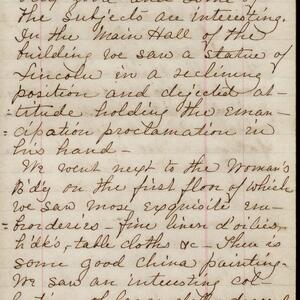 very good and some of
the subjects are interesting.
In the Main Hall of the
building we saw a statue of
Lincoln in a reclining
position and dejected at-
=titude holding the eman-
=cipation proclamation in
his hand –
We went next to the Woman's
B'dy on the first floor of which
we saw most exquisite em-
=broderies – fine linen d'oilies,
h'dk's, table cloths &c – There is
some good china painting.
We saw an interesting col-